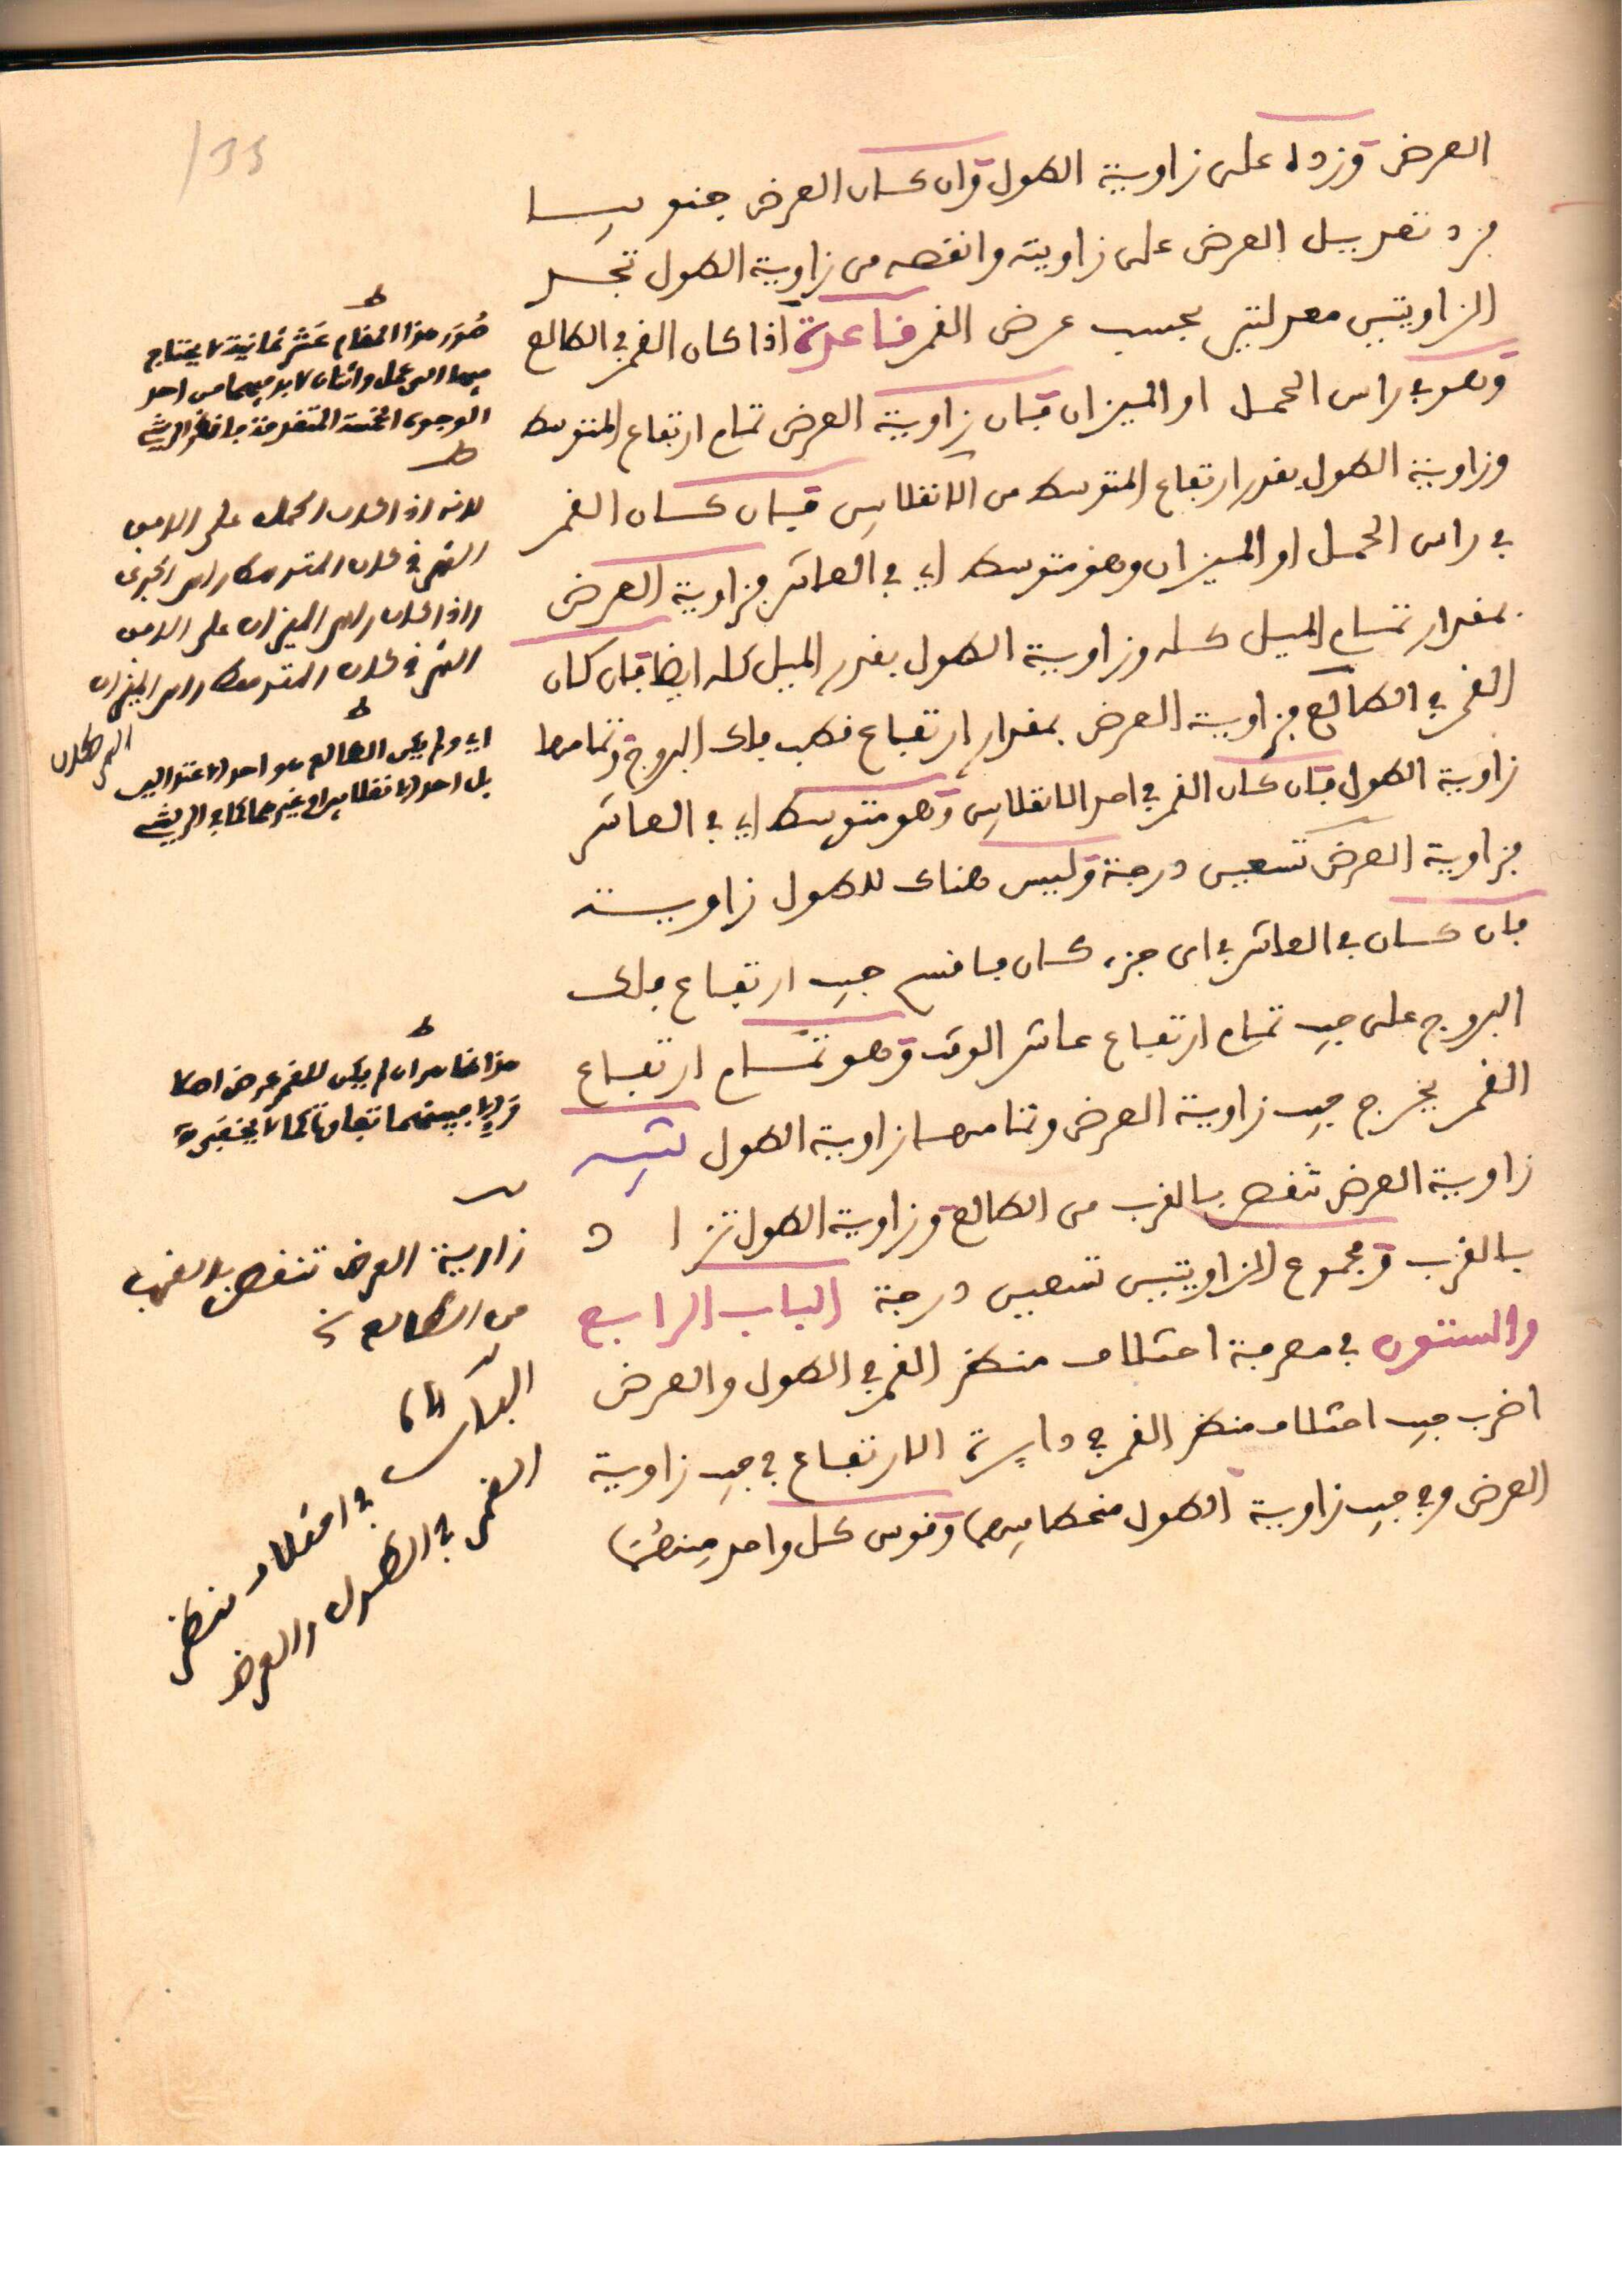 العرض وزده على زاوية الطول وان كان العرض جنوبيا
فزد تعديل العرض على زاويته وانقصه من زاوية الطول تجد
الزاويتين معدلتين بحسب عرض القمر قاعدة اذا كان القمر في الطالع
وهو في راس الحمل او الميزان فان زاوية العرض تمام ارتفاع المتوسط
وزاوية الطول بقدر ارتفاع المتوسط من الانقلابين فان كان القمر
في راس الحمل او الميزان وهو متوسط اي في العاشر فزاوية العرض
بمقدار تمام الميل كله وزاوية الطول بقدر الميل كله ايضا فان كان
القمر في الطالع فزاوية العرض بمقدار ارتفاع قطب فلك البروج وتمامها
زاوية الطول فان كان القمر في احد الانقلابين وهو متوسط اي في العاشر
فزاوية العرض تسعين درجة وليس هناك للطول زاوية
فان كان في العاشر في اي جزء كان فاقسم جيب ارتفاع فلك
البروج على جيب تمام ارتفاع عاشر الوقت وهو تمام ارتفاع
القمر يخرج جيب زاوية العرض وتمامها زاوية الطول تنبيه
زاوية العرض تنقص بالقرب من الطالع وزاوية الطول تزاد
بالقرب ومجموع الزاويتين تسعين درجة الباب الرابع
والستون في معرفة اختلاف منظر القمر في الطول والعرض
اضرب جيب اختلاف منظر القمر في دايرة الارتفاع في جيب زاوية
العرض وفي جيب زاوية الطول منحطا بينهما وقوس كل واحد منهما
صُوَر هذا المقام عشر ثمانية لا يحتاج
فيها الى عمل واثنان لا بد فيهما من احد
الوجوه الخمسة المتقدمة
ط
لانه اذا كان الحمل على الافق
الشرقي كان المتوسط راس الجدي
واذا كان راس الميزان على الافق
الشرقي كان المتوسط راس
السرطان
اي ولم يكن الطالع هو احد الاعتدالين
بل احد الانقلابين او غيرهما
هذا ان لم يكن للقمر عرض
زاوية العرض تنقص بالقرب
من الطالع
الباب 64
في اختلاف منظر
القمر في الطول والعرض
135